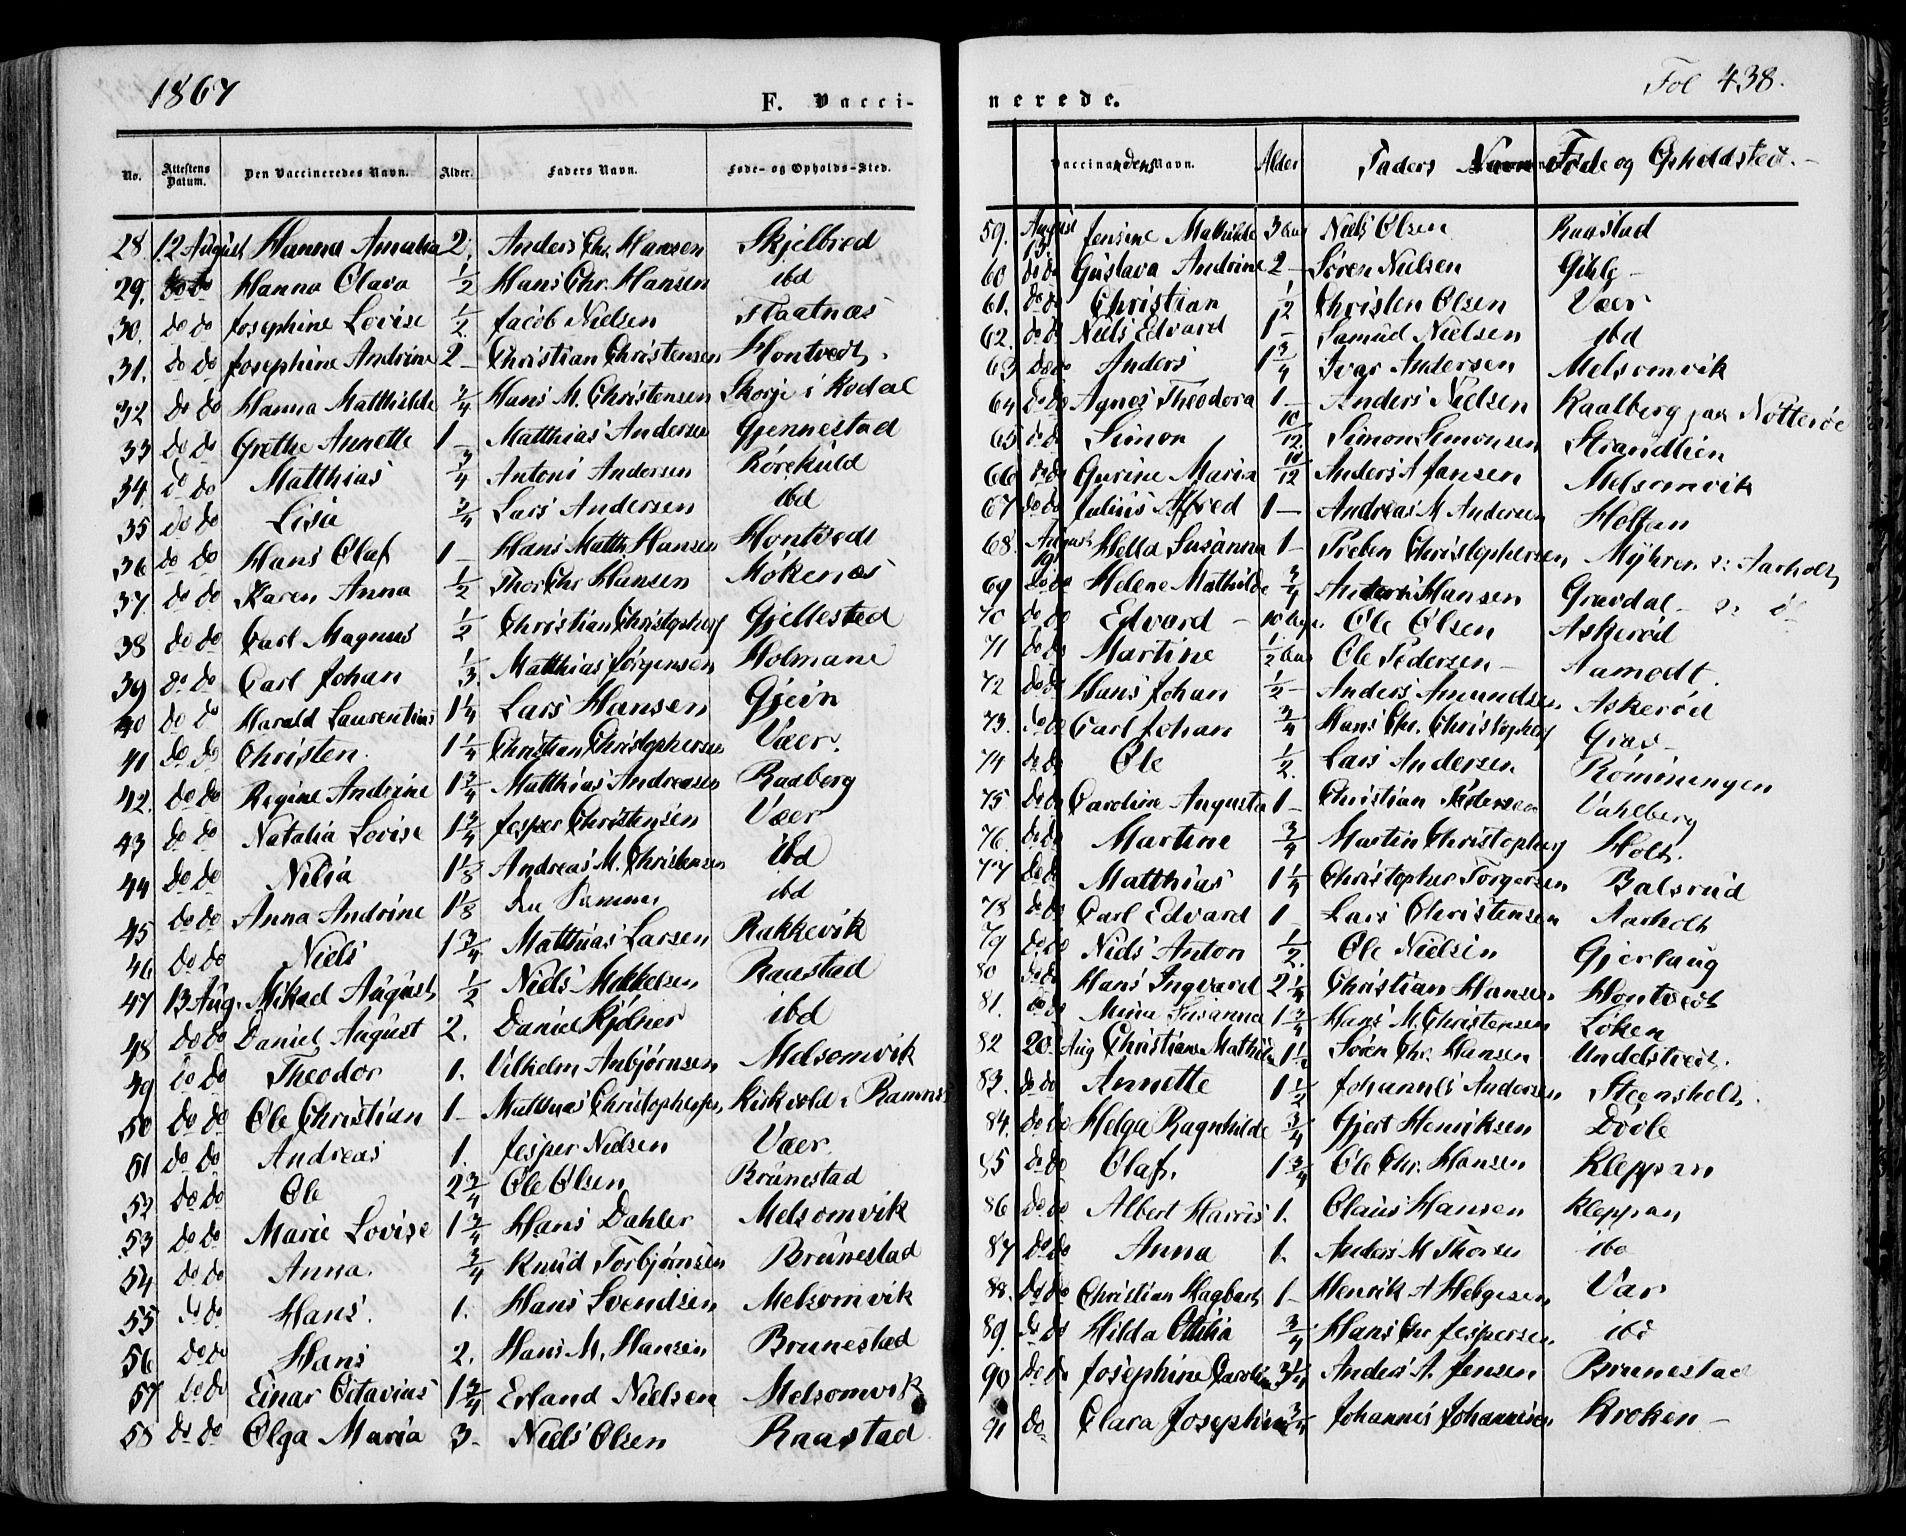 1867
F. Vacci-
No. Attestens Datum. Den Vaccineredes Navn. Alder. Faders Navn. Føde- og Opholds-Sted.
28. 12 August Hanna Amalia 2. Anders Chr. Hansen Skjelbred
29. do do Hanna Clava 1/2 Hans Chr. Hansen ibd
30. do do Josephine Lovise 1/2 Jacob Nielsen Flaatnæs
31. do do Josephine Andrine 2 - Christian Christensen Hontvedt.
32 do do Hanna Matthilde 3/4 Hans M. Christensen Skorje i Kodal
33 do do Grethe Annette 1 - Matthias Andersen Gjennestad
34. do do Matthias 3/4 Antoni Andersen Rørekuld
35 do do Lisa 3/4 Lars Andersen ibd
36 do do Hans Olaf 1 - Hans Matth. Hansen Hontvedt
37. do do Karen Anna 1/2 Thor Chr Hansen Møkenæs
38 do do Carl Magnus 1/2 Christian Christophers Gjellestad
39 do do Carl Johan 1/3. Matthias Jørgensen Holmane
40 do do Harald Laurentius 1 1/4 Lars Hansen Gjein
41 do do Christen. 1 1/4 Christian Christophersen Væer.
42. do do Regine Andrine 1 3/4 Matthias Andreasen Raaberg
43 do do Natalia Lovise 1 3/4 Jesper Christensen Væer
44 do do Nilia 1 1/8 Andreas M. Christensen ibd
45 do do Anna Andrine 1 1/8 den Samme ibd
46 do do Niels 1 3/4 Matthias Larsen Rakkevik
47 13 Aug. Mikael August 1/2 Niels Mikkelsen Raastad
48 do do Daniel August 2. Daniel Kjølner ibd
49 do do Theodor 1. Vilhelm Anbjørnsen Melsomvik
50 do do Ole Christian 1 - Matthias Christophersen Kirkvold i Ramnæs
51 do do Andreas 1. Jesper Nielsen Væer.
52 do do Ole 2 3/4 Ole Olsen Brunestad
53 do do Marie Lovise 1 3/4 Hans Dahler Melsomvik
54 do do Anna. 3/4 Knud Torbjørnsen Brunestad
55 do do Hans. 1. Hans Svendsen Melsomvik
56 do do Hans 2. Hans M. Hansen Brunestad
57 do do Einar Octavius 1 3/4 Erland Nielsen Melsomvik
58 do do Olga Maria 3 - Niels Olsen Raastad
Fol 438.
nerede.
Vaccinandens Navn. Alder Faders Navn Føde og Opholdsted. -
59. August 13. Jensine Mathilde 3 Aar Niels Olsen Raastad
60 do do Gustava Andrine 2 - Søren Nielsen Gihle -
61. do do Christian 1/2 Christen Olsen Væer
62. do do Niels Edvard 1 - Samuel Nielsen ibd
63 do do Anders 1 3/4 Ivar Andersen Melsomvik
64 do do Agnes Theodora 1 - Anders Nielsen Kaalberg paa Nøtterøe
65 do do Simon 10/12 Simon Simonsen Strandlien
66 do do Gurine Maria 10/12 Anders A Jansen Melsomvik
67 do do Julius Alfred 1 - Andreas M Andersen Holtan
68. August 19. Hella Susanna 1 - Preben Christophersen Myhren v: Aarholt
69 do do Helene Mathilde 3/4 Anders Hansen Gravdal
70 do do Edvard - 10 Ole Olsen Askerød
71 do do Martine 1/2 Aar Ole Pedersen - Aamodt.
72 do do Hans Johan 1/2 - Anders Amundsen Askerød
73. do do Carl Johan 3/4 Hans Chr. Christophers Grav -
74 do do Ole 1/2. Lars Andersen Rømmingen
75 do do Caroline Augusta 1 - Christian Pedersen Vahlberg
76. do do Martine 3/4 Martin Christophers Holt.
77 do do Matthias 1 1/4 Christopher Torgersen Balsrud
78 do do Carl Edvard 1 - Lars Christensen Aarholt
79 do do Niels Anton 1/2. Ole Nielsen Gjerlaug
80 do do Hans Ingvard 2 1/4 Christian Hansen Hontvedt
81. do do Mina Susanna 1 3/4 Hans M. Christensen Løken
82 20. Aug Christiane Mathilde 1 1/2 Søren Chr. Hansen Undelstvedt.
83. do do Annette 1 1/2 Johannes Andersen Steensholt.
84. do do Helga Ragnhilde 3/4 Gjert Henriksen Døvle
85 do do Olaf. 1 3/4 Ole Chr. Hansen Kleppan
86 do do Albert Harris 1. Claus Hansen Kleppan
87 do do Anna 1. Anders M Thorsen ibd
88. do do Christian Hagbart 1 - Henrik A Helgesen Vær
89. do do Hilda Otilia 3/4 Hans Chr Jespersen ibd
90 do do Josephine Caroline 3 1/4 Anders A. Jensen Brunestad
91 do Clara Josephine 3/4 Johannes Johannesen Kroken -